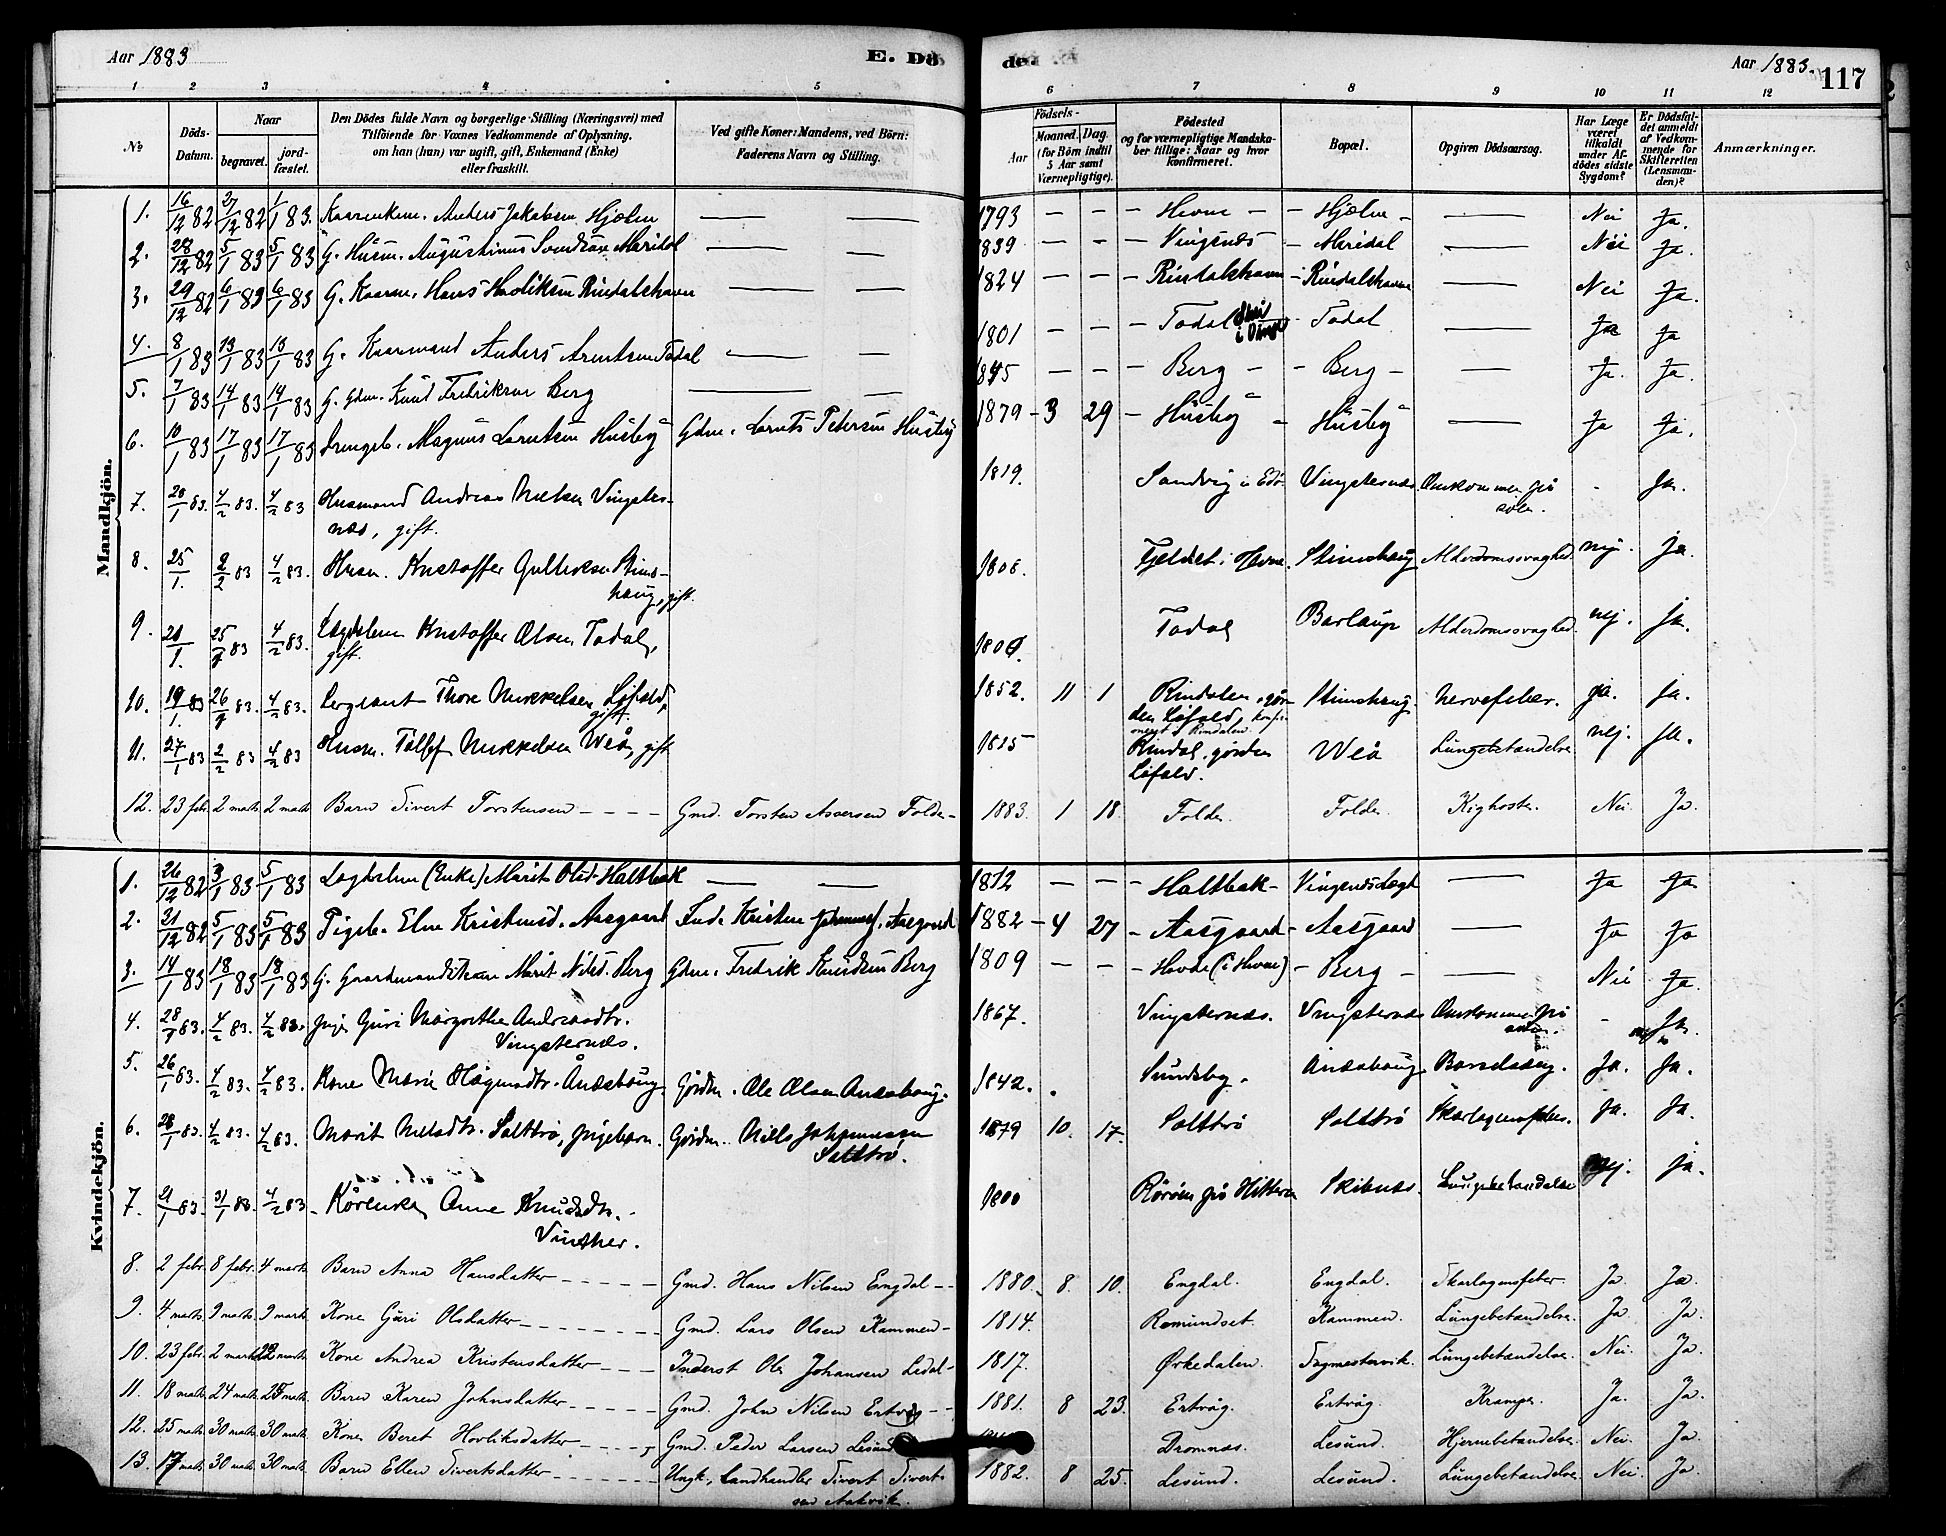 Aar 1883
E. Dö
den
Aar 1883.
117
1 2 3 4 5 6 7 8 9 10 11 12
No
Döds-Datum.
Naar
begravet.
jordfæstet.
Den Dödes fulde Navn og borgerlige Stilling (Næringsvei) med Tilföiende for Voxnes Vedkommende af Oplysning, om han (hun) var ugift, gift, Enkemand (Enke) eller fraskilt.
Ved gifte Koner: Mandens, ved Börn: Faderens Navn og Stilling.
Födsels-
Aar
Maaned. Dag.
(for Börn indtil 5 Aar samt Værnepligtige).
Födested og for værnepligtige Mandskaber tillige: Naar og hvor konfirmeret.
Bopæl.
Opgiven Dödsaarsag.
Har Læge været tilkaldt under Afdödes sidste Sygdom?
Er Dödsfaldet anmeldt af Vedkommende for Skifteretten (Lensmanden)?
Anmærkninger.
Mandkjön.
1. 16/12 82 27/12 82 1/1 83. Anders Jakobsen Hjælen 1793 Hevne Hjælen Nei Ja.
2. 28/12 82 5/1 83 5/1 83 G. Husm. Augustinus Maridal 1839 Vingenæs Maridal Nei Ja.
3. 29/12 82 6/1 83 6/1 83 G. Hans Rindalshavn 1824 Rindalshavn Rindalshavn Nei Ja.
4. 8/1 83 13/1 83 13/1 83 G. Kaarmand Anders Arentsen Todal 1801 Todal Todal Ja Ja
5. 7/1 83 14/1 83 14/1 83 G. Gdm. Knud Fredriksen Berg Berg Berg Ja. Ja.
6. 10/1 83 17/1 83 17/1 83 Drengeb. Magnus Lorntsen Husby Gdm. Lornts Petersen Husby 1879 3 29 Husby Husby Ja Ja.
7. 20/1 83. 4/2 83. 4/2 83 Husmand Andreas Nielsen Vingsternæs, gift. 1819. Sandvig i Edø Vingsternæs Omkommen på søen. - Ja.
8. 25/1. 2/2 83 4/2 83. Husm. Kristoffer Stimshaug, gift. Fjeldet i Hevne Stimshaug Alderdomssvaghed nej. ja.
9. 21/1. 4/2 83. Lægdslem Kristoffer Olsen Todal, gift. Todal Barlaup Alderdomssvaghed. nej. ja.
10. 19/1. 83 4/2 83. Sergeant Thore Mikkelsen Løfald, gift. 1852. 11 1 Rindalen, gården Løfald, Stimshaug. Nervefeber. ja. ja.
11. 27/1 83 2/2 83 4/2 83 Husm. Mikkelsen Weå, gift 1815 Rindal, gården Løfald. Weå Lungebetændelse nej. ja.
12. 23 febr. 2 marts. 2 marts. Barn Sivert Torstensen Gmd. Torsten Assersen Folde 1883. 1 18. Folde. Folde. Kighoste. Nei Ja
Kvindekjön.
1. 26/12 82 3/1 83 5/1 83 Lægdslem (Enke) Marit Olsd. Haltbak 1812 Haltbak Vingenæslægd Ja Ja
2. 21/12 82 5/1 83 5/1 83 Pigeb. Elen Kristensd. Aasgaard Ind. Kristen Aasgaard 1882 4 27 Aasgaard Aasgaard Ja Ja
3. 14/1 83 18/1 83 18/1 83 G. Gaardmandskone Marit Nilsd. Berg Gdm. Fredrik Knudsen Berg 1809 Hovde (i Hevne) Berg Nei Ja.
4. 28/1 83. 4/2 83. 4/2 83. Pige Guri Margrethe Andreasdtr. Vingsternæs. 1867. Vingsternæs. Vingsternæs Omkommen på søen. - Ja.
5. 26/1 83. 4/2 83. 4/2 83. Kone Marie Hågensdtr. Åndahaug. Gårdm. Ole Olsen Åndahaug. 1842. Sundsby. Åndahaug Barselseng. Ja. Ja.
6. 28/1 83. 4/2 83. 4/2 83. Marit Nielsdtr. Salttrø, pigebarn. Gårdm. Niels Johannessen Salttrø. 1879 10. 17. Salttrø Salttrø Skarlagensfeber. ja. ja.
7. 21/1 83. 31/1 83. 4/2 83. Kårenke Anne Knudsdtr. Vinther. 1800 på Hitteren Skibnæs. Lungebetændelse nej. ja.
8. 2 febr. 8 febr. 4 marts. Barn Anna Hansdatter Gmd. Hans Nilsen Engdal 1880. 8. 10. Engdal. Engdal. Skarlagensfeber Ja Ja
9. 4 marts. 9 marts. 9 marts. Kone Guri Olsdatter Gmd. Lars Olsen Kammen 1814. Romundset. Kammen. Lungebetændelse. Ja Ja
10. 23 febr. 2 marts. 22 marts. Kone Andrea Kristensdatter Inderst Ole Johansen Ledal 1817. Ørkedalen. Tagmestervik. Lungebetændelse. Nei. Ja.
11. 18 marts. 24 marts. 25 marts. Barn Karen Johnsdatter Gmd. John Nilsen Ertvåg 1881. 8 23. Ertvåg. Ertvåg. Krampe. Ja. Ja
12. 25 marts. 30 marts. 30 marts. Kone Beret Hovliksdatter Gmd. Peder Larsen Lesund Dromnæs. Lesund. Hjernebetændelse. Nei. Ja
13. 17 marts. 30 marts. 30 marts. Barn Ellen Sivertsdatter Ungk., Landhandler Sivert Sivertsen Aakvik. 1882. 8 25. Lesund. Lesund. Lungebetændelse. Nei. Ja